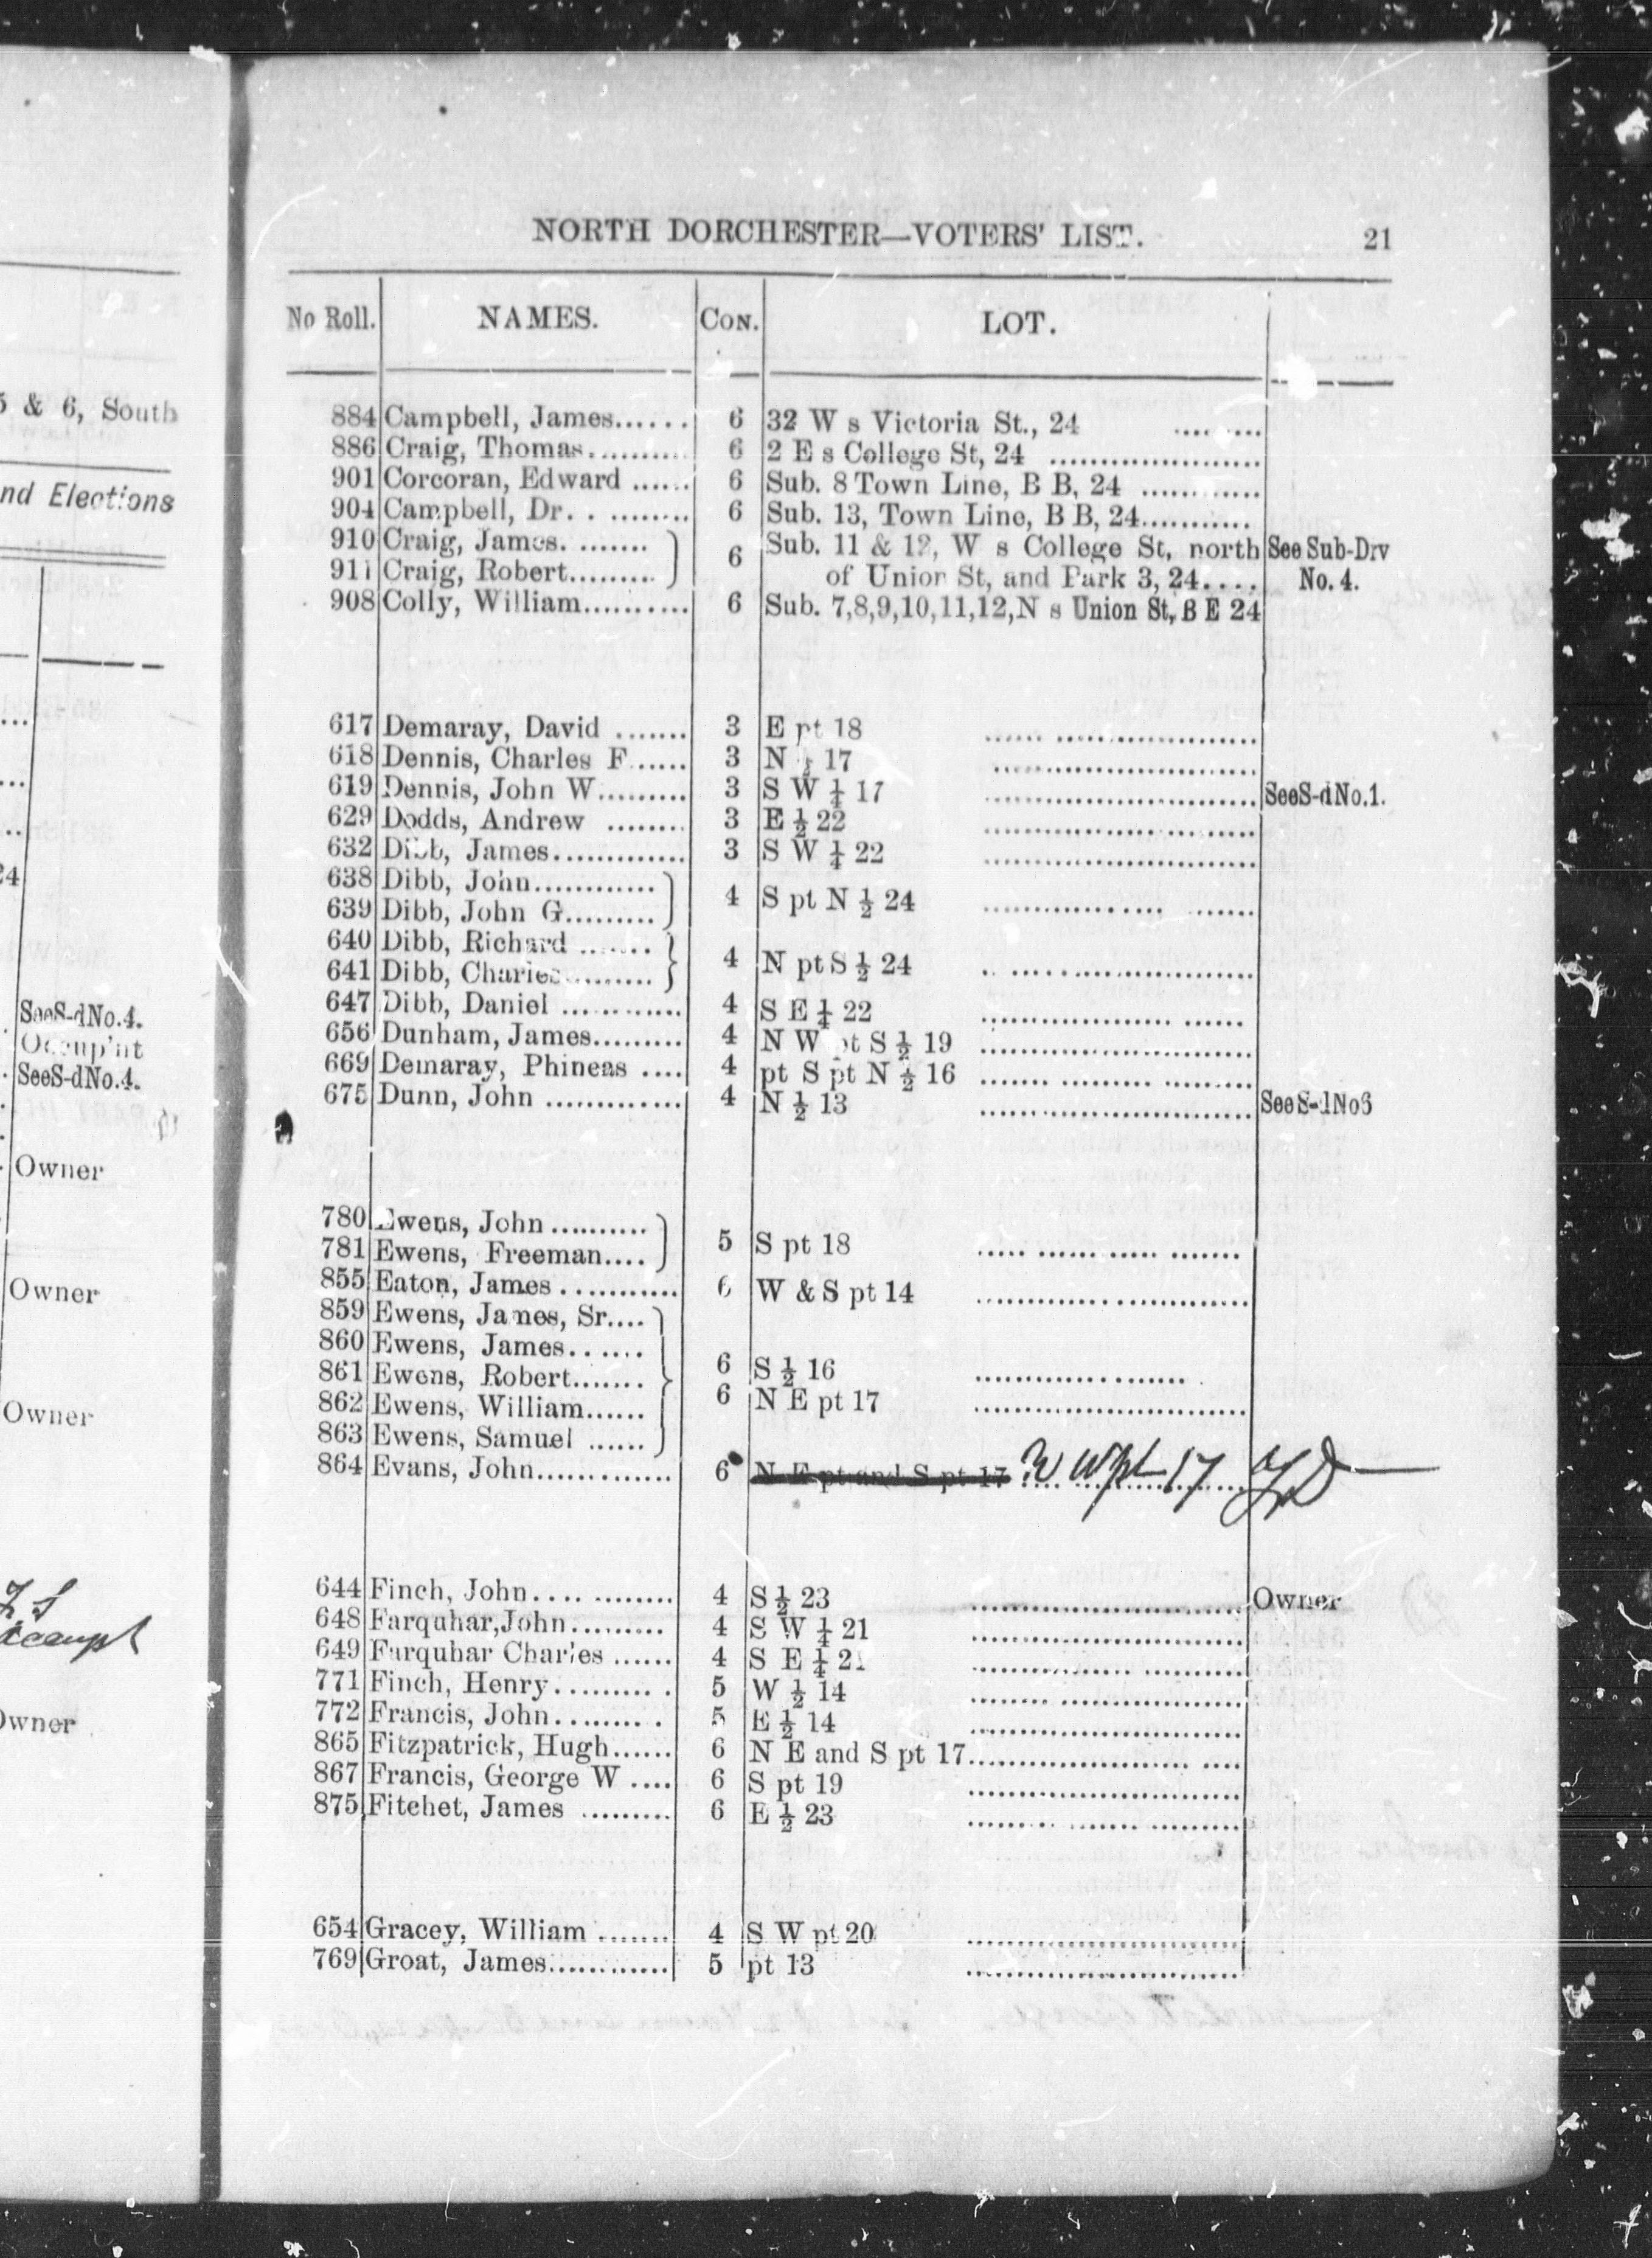 5 & 6, South
nd Elections
24
SeeS-dNo.4.
Occup'nt
SeeS-dNo.4.
Owner
Owner
Owner
Owner
NORTH DORCHESTER—VOTERS' LIST. 21
No Roll. NAMES. CON. LOT.
884 Campbell, James...... 6 32 W s Victoria St., 24 .........
886 Craig, Thomas.......... 6 2 E s College St, 24 .....................
901 Corcoran, Edward ...... 6 Sub. 8 Town Line, B B, 24 ............
904 Campbell, Dr. . ........ 6 Sub. 13, Town Line, B B, 24...........
910 Craig, James. ....... 6 Sub. 11 & 12, W s College St, north See Sub-Div
911 Craig, Robert......... of Union St, and Park 3, 24.... No. 4.
908 Colly, William.......... 6 Sub. 7,8,9,10,11,12,N s Union St, B E 24
617 Demaray, David ....... 3 E pt 18
618 Dennis, Charles F...... 3 N ½ 17
619 Dennis, John W......... 3 S W ¼ 17 SeeS-dNo.1.
629 Dodds, Andrew ........ 3 E ½ 22
632 Dibb, James............. 3 S W ¼ 22
638 Dibb, John............
639 Dibb, John G......... 4 S pt N ½ 24
640 Dibb, Richard .......
641 Dibb, Charles......... 4 N pt S ½ 24
647 Dibb, Daniel ............ 4 S E ¼ 22
656 Dunham, James......... 4 N W pt S ½ 19
669 Demaray, Phineas .... 4 pt S pt N ½ 16
675 Dunn, John ............. 4 N ½ 13 See S-dNo3
780 Ewens, John ..........
781 Ewens, Freeman.... 5 S pt 18
855 Eaton, James ............ 6 W & S pt 14
859 Ewens, James, Sr....
860 Ewens, James......
861 Ewens, Robert....... 6 S ½ 16
862 Ewens, William...... 6 N E pt 17
863 Ewens, Samuel ......
864 Evans, John............. 6 N E pt and S pt 17 W pt 17
644 Finch, John.... ......... 4 S ½ 23 Owner
648 Farquhar,John......... 4 S W ¼ 21
649 Farquhar Charles ...... 4 S E ¼ 21
771 Finch, Henry......... . 5 W ½ 14
772 Francis, John........ . 5 E ½ 14
865 Fitzpatrick, Hugh...... 6 N E and S pt 17
867 Francis, George W .... 6 S pt 19
875 Fitchet, James ......... 6 E ½ 23
654 Gracey, William ....... 4 S W pt 20
769 Groat, James............ 5 pt 13